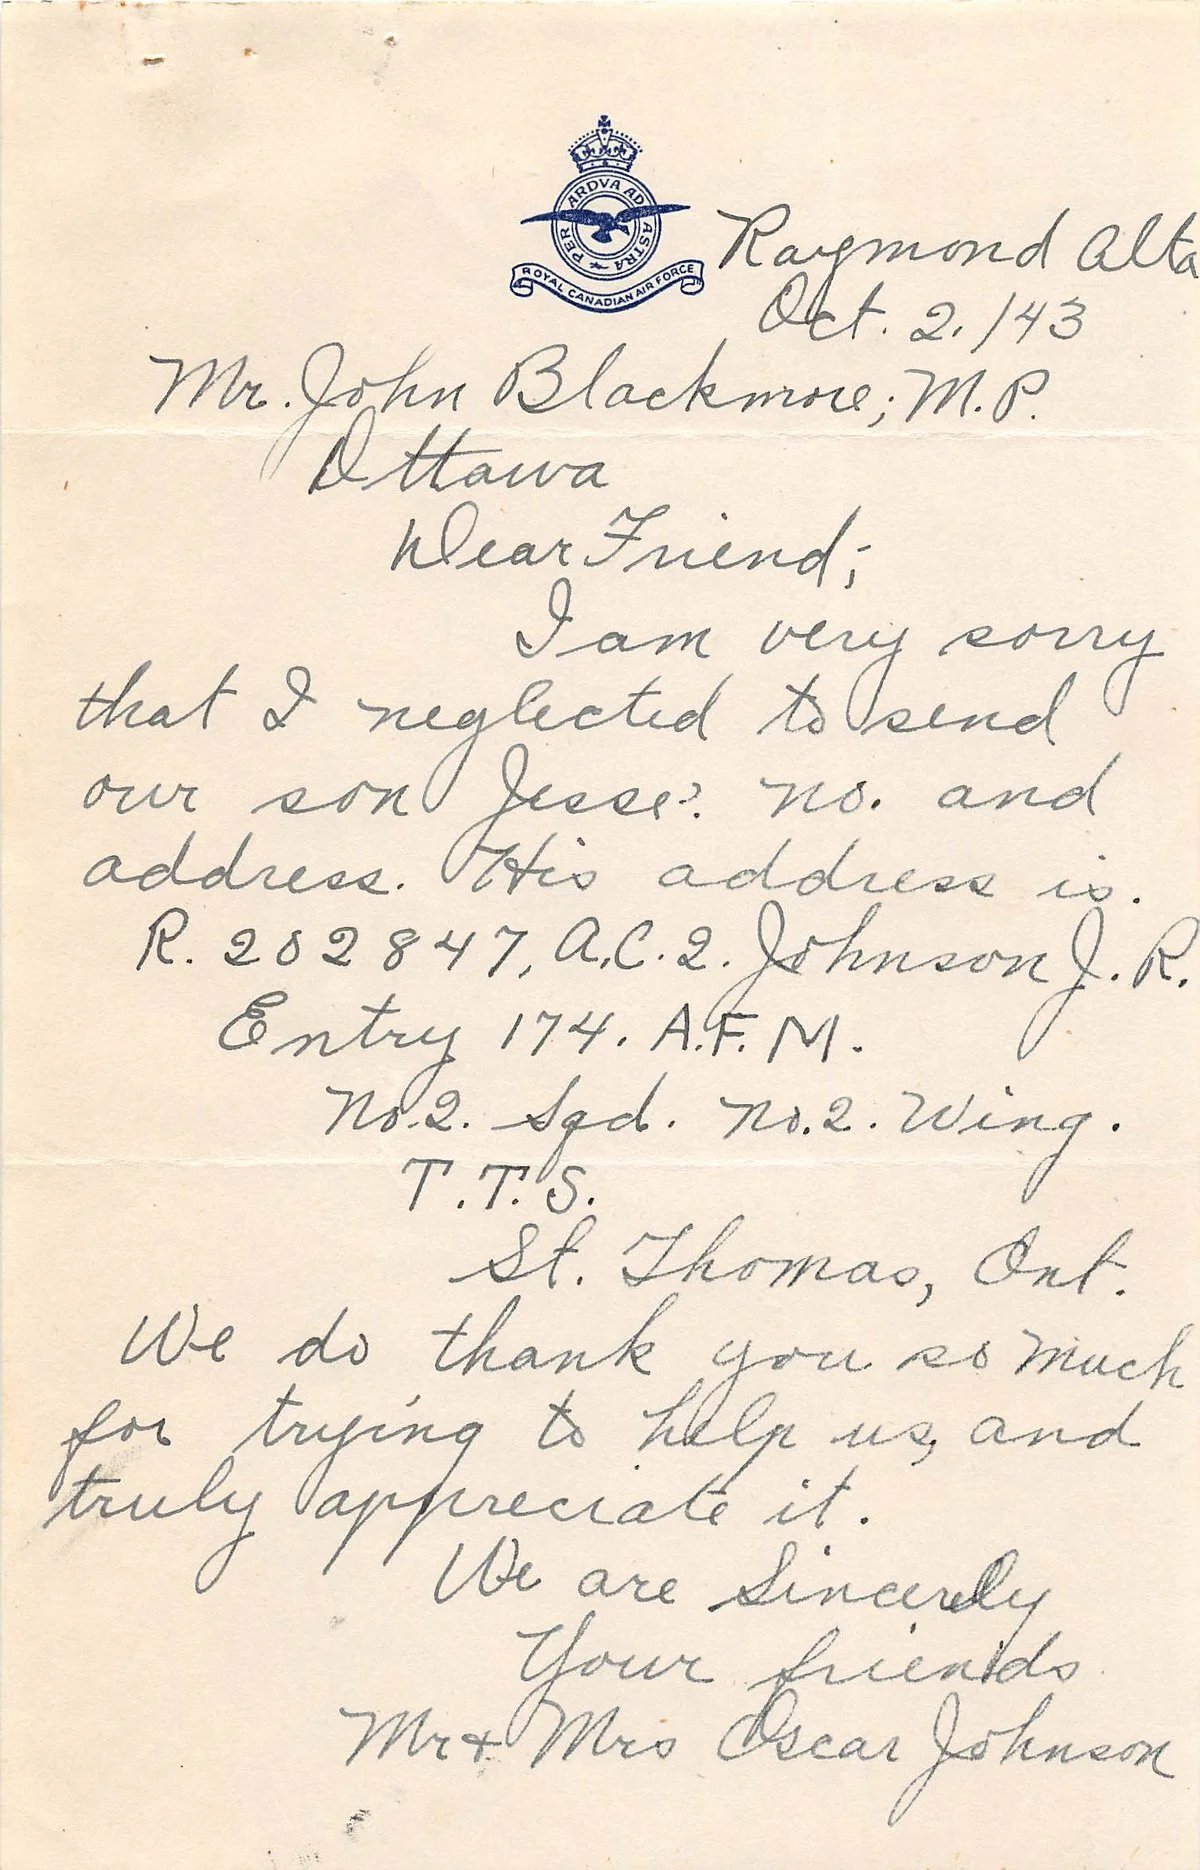 PER ARDVA AD ASTRA
ROYAL CANADIAN AIR FORCE
Raymond Alta
Oct. 2./43
Mr. John Blackmore; M.P.
Ottawa
Dear Friend;
I am very sorry
that I neglected to send
our son Jesse's. no. and
address. His address is.
R. 202847, A.C.2. Johnson J. R.
Entry 174. A.F.M.
No.2. Sqd. No.2. Wing.
T.T.S.
St. Thomas, Ont.
We do thank you so much
for trying to help us, and
truly appreciate it.
We are Sincerely
Your friends
Mr + Mrs Oscar Johnson